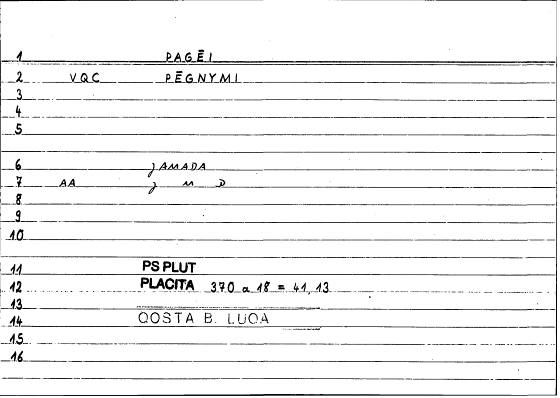 1 PAGĒI
2 VQC PĒGNYMI
3
4
5
6 JAMADA
7 AA J M D
8
9
10
11 PS PLUT
12 PLACITA 370 a 18 = 41, 13
13
14 QOSTA B. LUQA
15
16